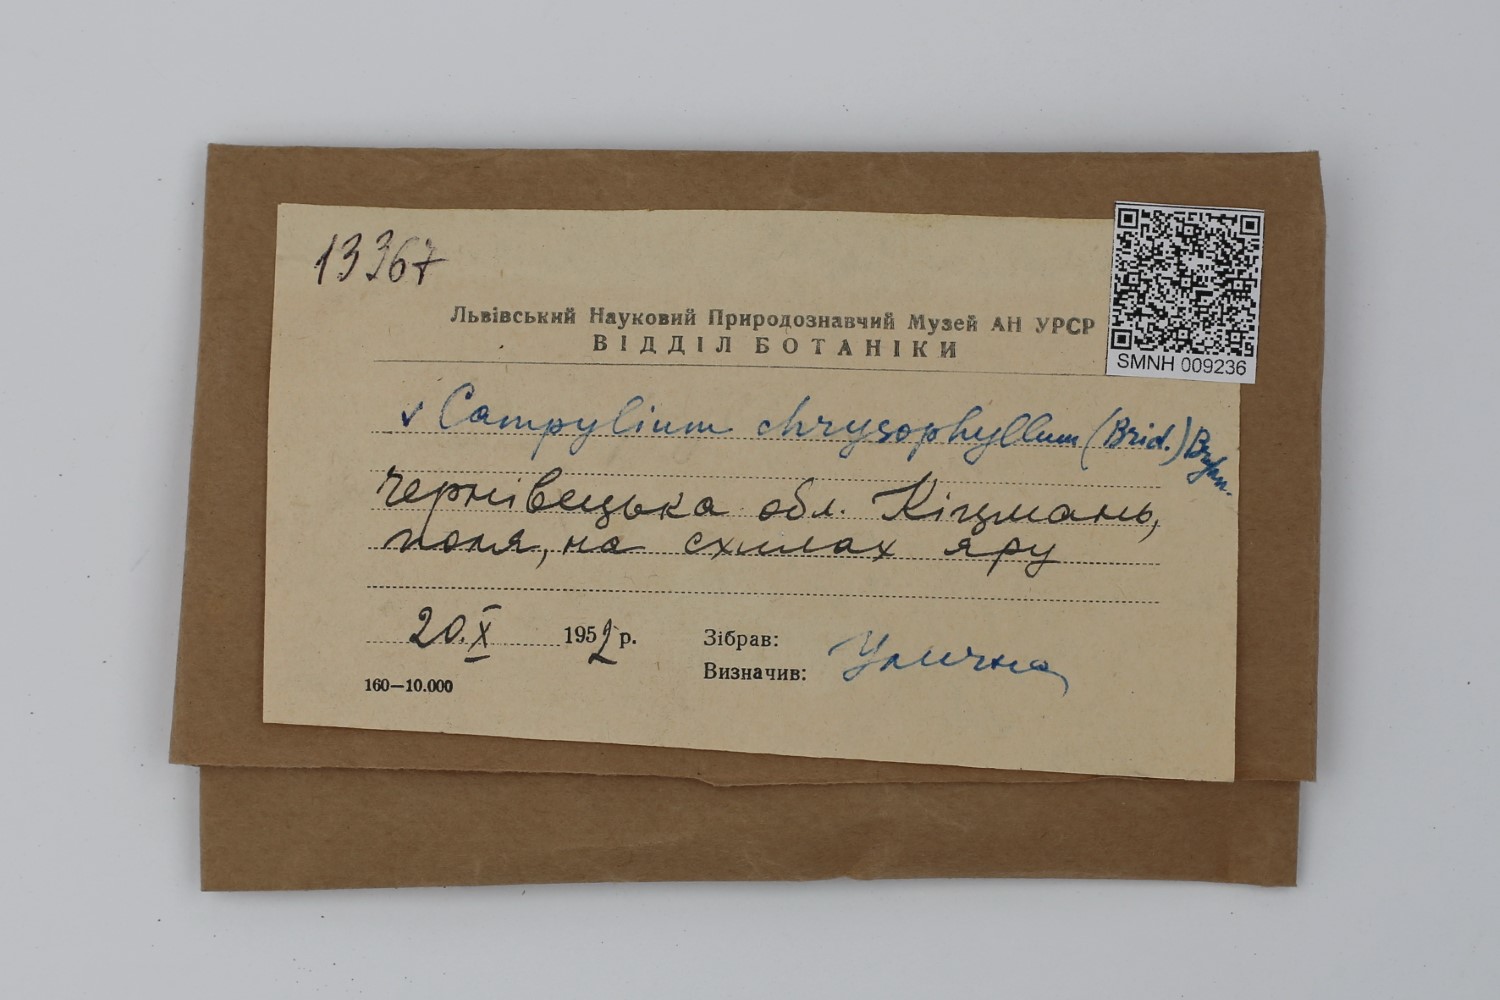 13367
Львівський Науковий Природознавчий Музей АН УРСР
ВІДДІЛ БОТАНІКИ
SMNH 009236
v Campylium chrysophyllum (Brid.) Bryhn.
Чернівецька обл. Кіцмань,
поля, на схилах яру
20.X 1952 р.
Зібрав:
Визначив: Улична
160—10.000